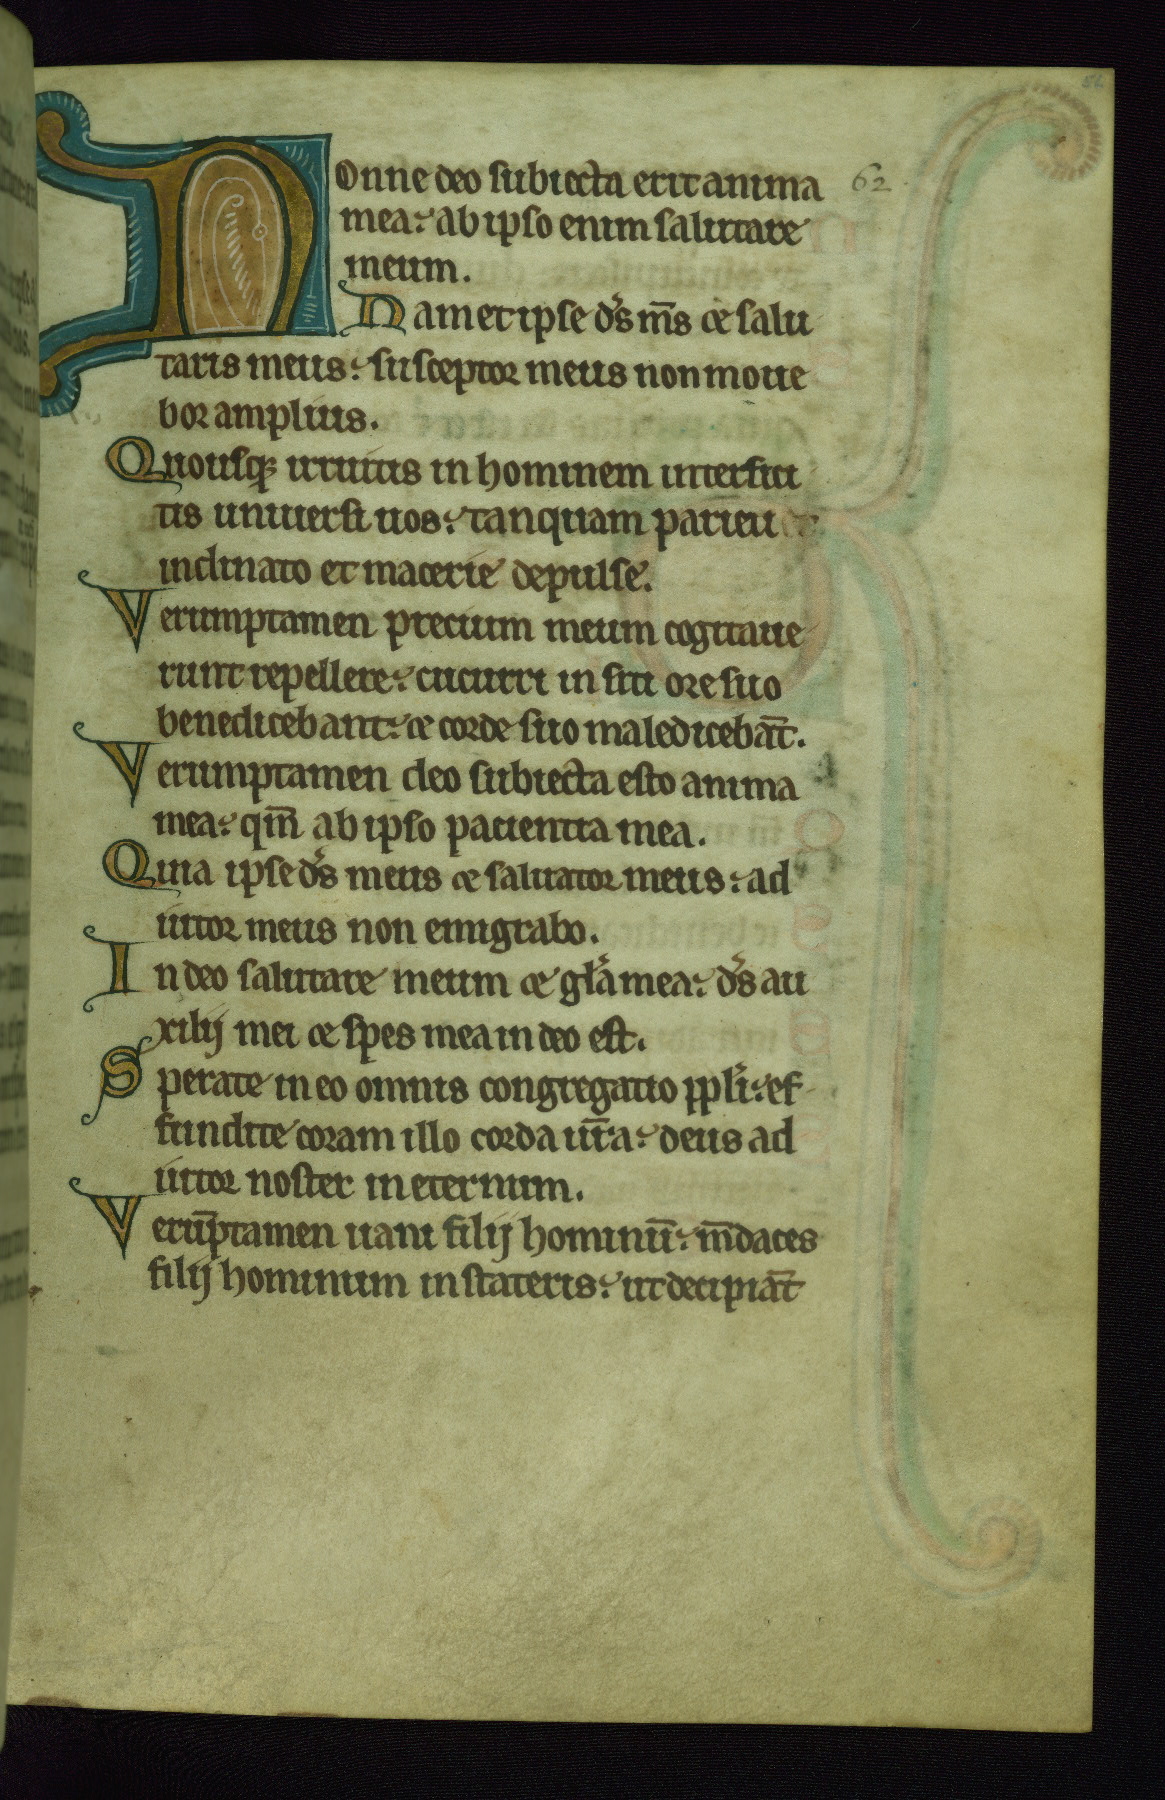 Nonne deo subiecta erit anima 62
mea: ab ipso enim salutare
meum.
Nam et ipse ds̄ ms̄ ⁊ salu
taris meus: susceptor meus non moue
bor amplius.
Quousq; irruitis in hominem interfici
tis uniuersi uos: tanquam parieti
inclinato et macerie depulse.
Verumptamen precium meum cogitaue
runt repellere: cucurri in siti ore suo
benedicebant: ⁊ corde suo maledicebāt.
Verumptamen deo subiecta esto anima
mea: qm̄ ab ipso pacientia mea.
Quia ipse ds̄ meus ⁊ saluator meus: ad
iutor meus non emigrabo.
In deo salutare meum ⁊ gl̄a mea: ds̄ au
xilij mei ⁊ spes mea in deo est.
Sperate in eo omnis congregatio ppl̄i: ef
fundite coram illo corda ur̄a: deus ad
iutor noster in eternum.
Verūptamen uani filij hominū: m̄daces
filij hominum in stateris: ut decipiāt